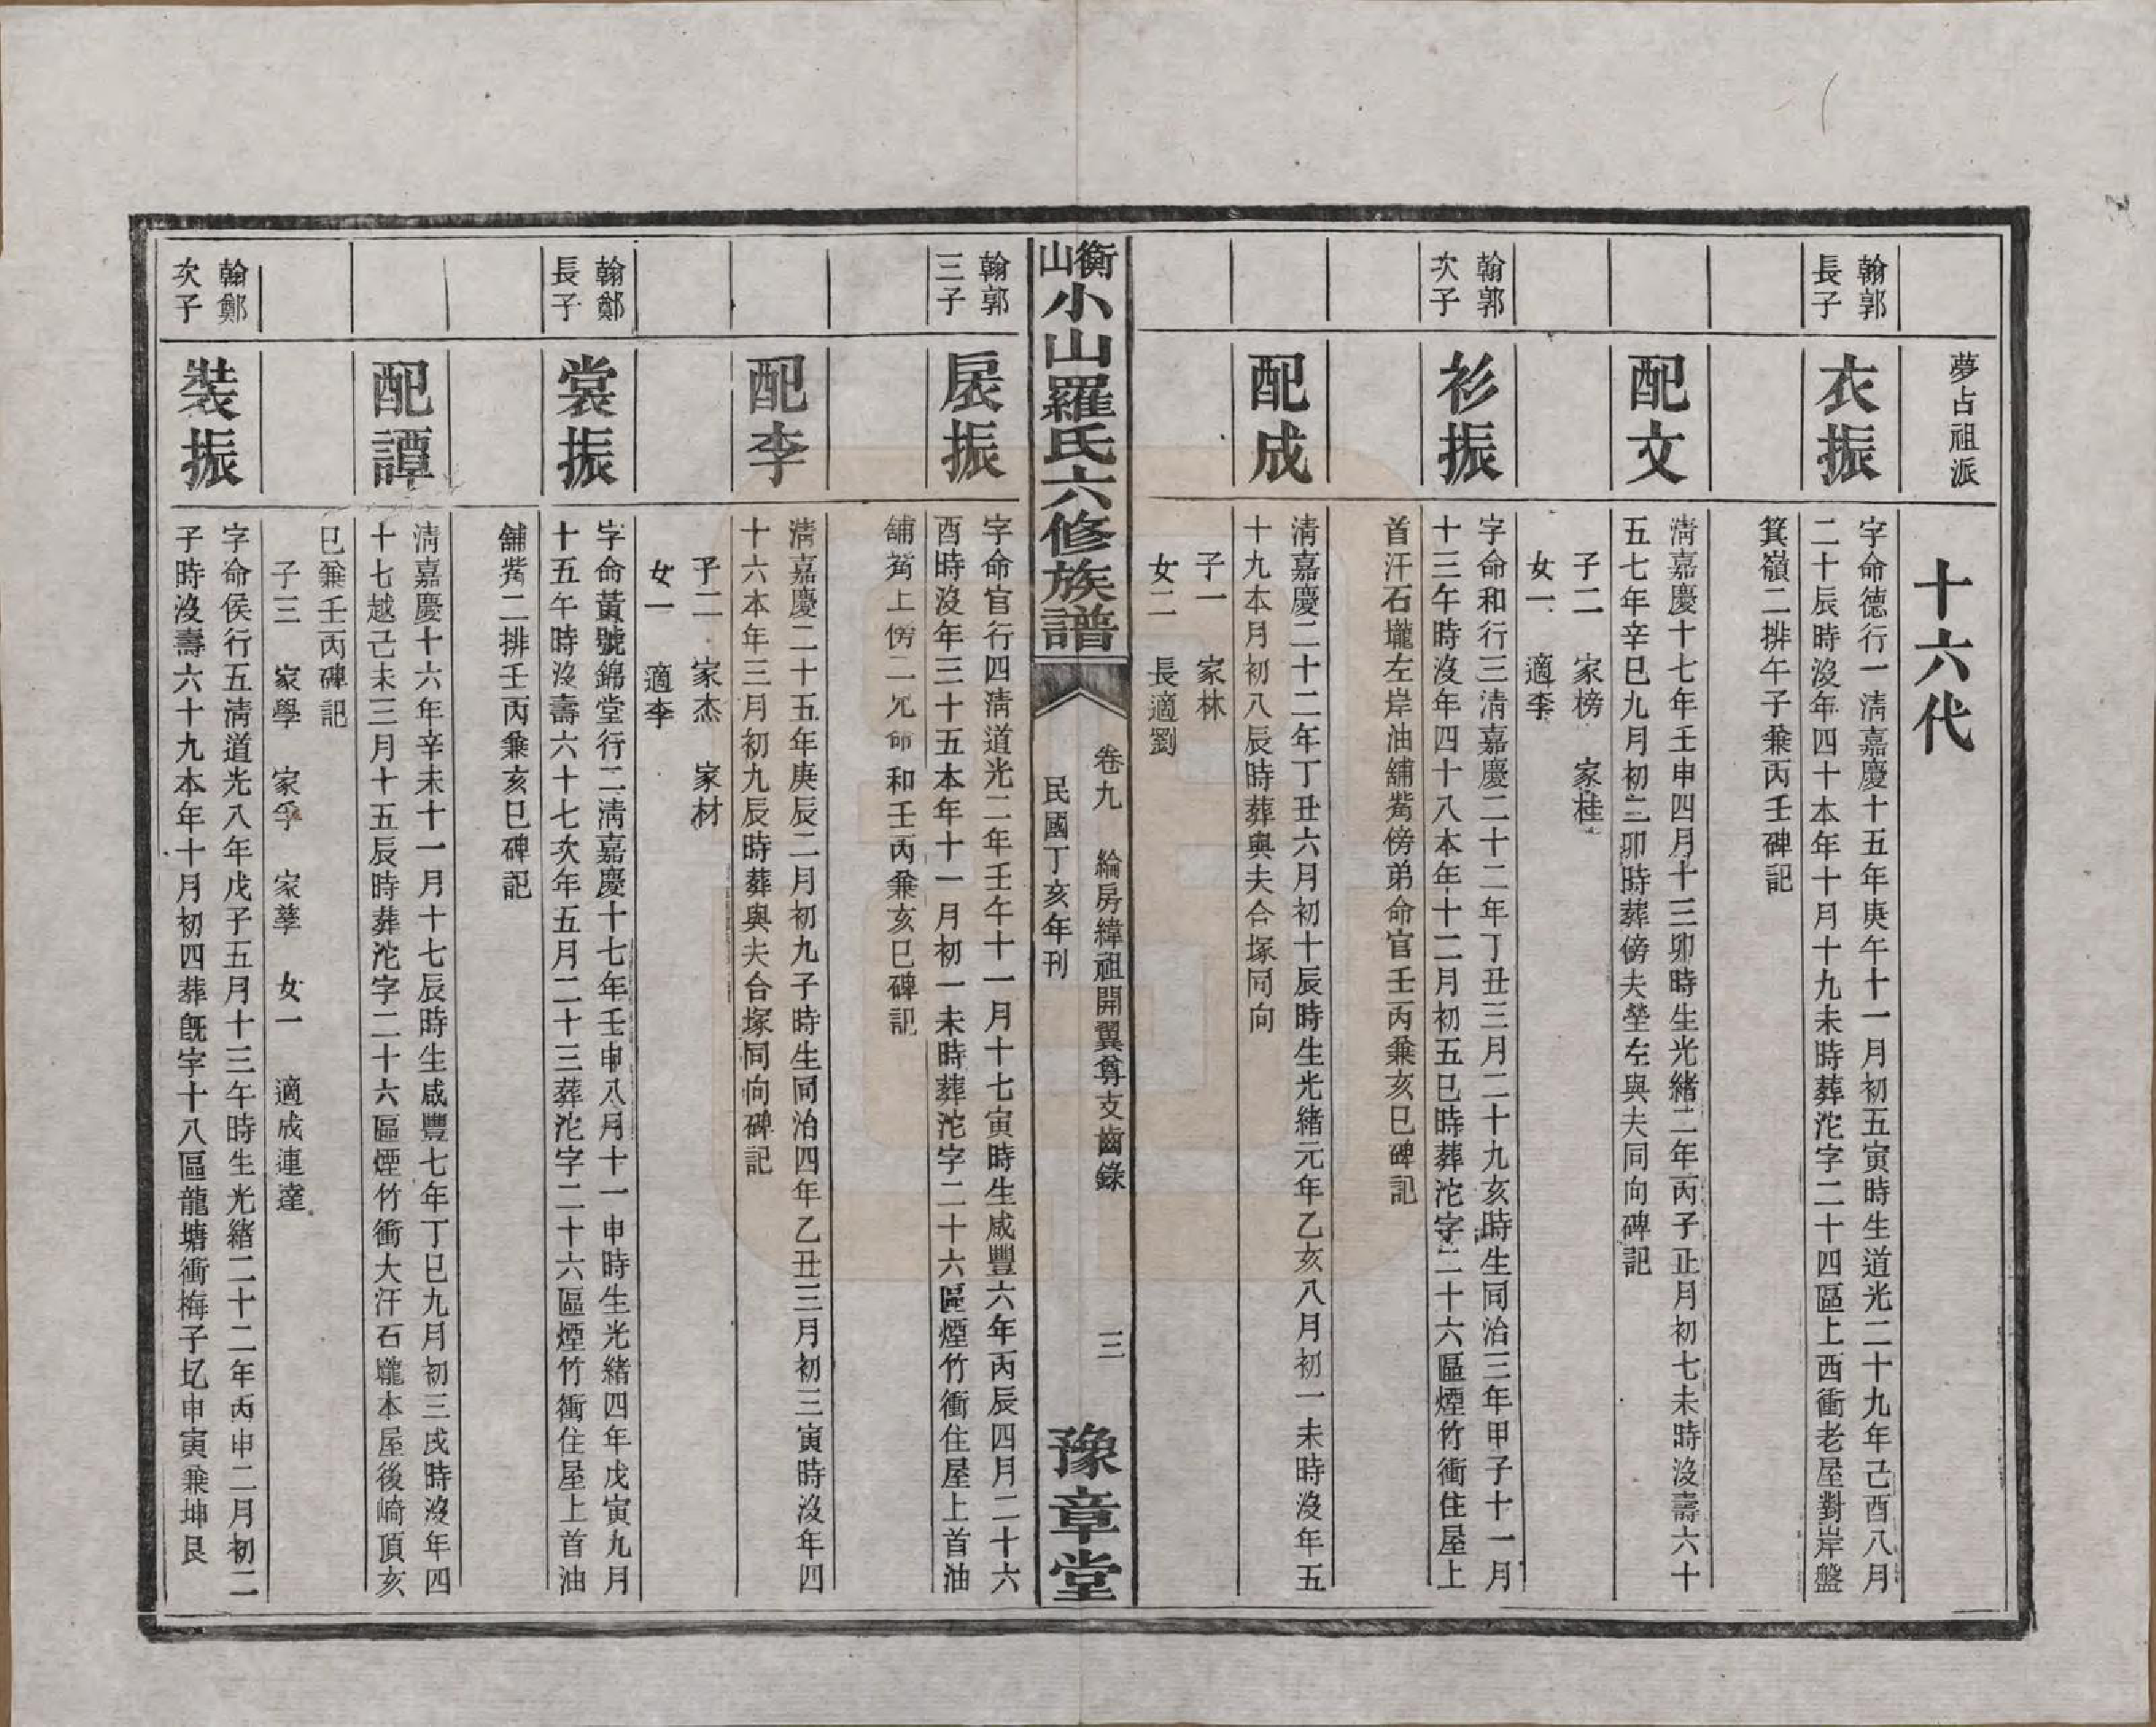 夢占祖派
十六代
翰郭
長子
衣振
字命德行一清嘉慶十五年庚午十一月初五寅時生道光二十九年己酉八月
二十辰時沒年四十本年十月十九未時葬沱字二十四區上西衝老屋對岸盤
箕嶺二排午子兼丙壬碑記
配文
清嘉慶十七年壬申四月十三卯時生光緒二年丙子正月初七未時沒壽六十
五七年辛巳九月初三卯時葬傍夫塋左與夫同向碑記
子二 家榜 家桂
女一 適李
翰郭
次子
衫振
字命和行三清嘉慶二十二年丁丑三月二十九亥時生同治三年甲子十一月
十三午時沒年四十八本年十二月初五巳時葬沱字二十六區煙竹衝住屋上
首汗石壠左岸油舖嘴傍弟命官壬丙兼亥巳碑記
配成
清嘉慶二十二年丁丑六月初十辰時生光緒元年乙亥八月初一未時沒年五
十九本月初八辰時葬與夫合塚同向
子一 家林
女二 長適劉
衡山小山羅氏六修族譜
卷九 綸房緯祖開翼尊支齒錄 三
民國丁亥年刊
豫章堂
翰郭
三子
扆振
字命官行四清道光二年壬午十一月十七寅時生咸豐六年丙辰四月二十六
酉時沒年三十五本年十一月初一未時葬沱字二十六區煙竹衝住屋上首油
舖嘴上傍二兄命和壬丙兼亥巳碑記
配李
清嘉慶二十五年庚辰二月初九子時生同治四年乙丑三月初三寅時沒年四
十六本年三月初九辰時葬與夫合塚同向碑記
子二 家杰 家材
女一 適李
翰鄭
長子
裳振
字命黃號錦堂行二清嘉慶十七年壬申八月十一申時生光緒四年戊寅九月
十五午時沒壽六十七次年五月二十三葬沱字二十六區煙竹衝住屋上首油
舖嘴二排壬丙兼亥巳碑記
配譚
清嘉慶十六年辛未十一月十七辰時生咸豐七年丁巳九月初三戌時沒年四
十七越己未三月十五辰時葬沱字二十六區煙竹衝大汗石壠本屋後崎頂亥
巳兼壬丙碑記
子三 家學 家孚 家孳 女一 適成連達
翰鄭
次子
裝振
字命侯行五清道光八年戊子五月十三午時生光緒二十二年丙申二月初二
子時沒壽六十九本年十月初四葬旣字十八區龍塘衝梅子圪申寅兼坤艮